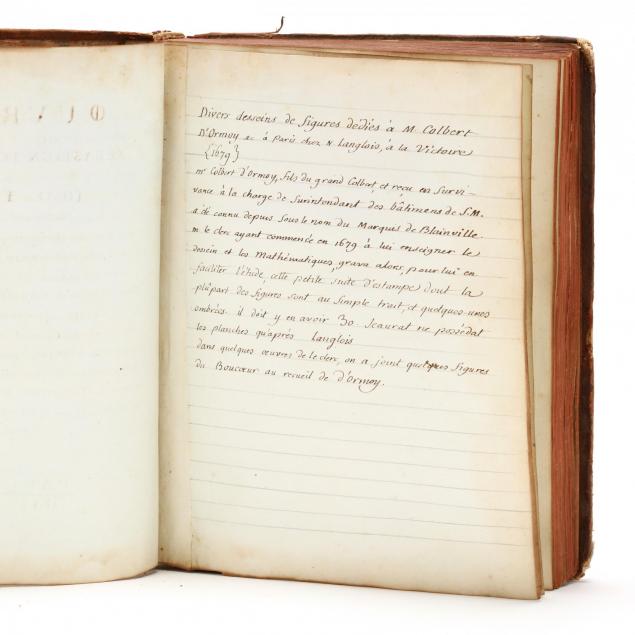 Divers desseins de figures dédiés à M. Colbert
D'Ormoy &c à Paris chez N. Langlois, à la Victoire
{1679}
mr Colbert d'Ormoy, fils du grand Colbert, et reçu en Survi-
vance à la charge de Surintendant des bâtimens de S.M.
a été connu depuis sous le nom du Marquis de Blainville.
m. le clerc ayant commencé en 1679 à lui enseigner le
dessein et les Mathématiques, grava alors, pour lui en
faciliter l'étude, cette petite suite d'estampe dont la
plûpart des figures sont au simple trait, et quelques-unes
ombrées. il doit y en avoir 30. Jeaurat ne possédat
les planches qu'après Langlois
dans quelques œuvres de le clerc, on a joint quelques figures
du Boucœur au recueil de d'Ormoy.